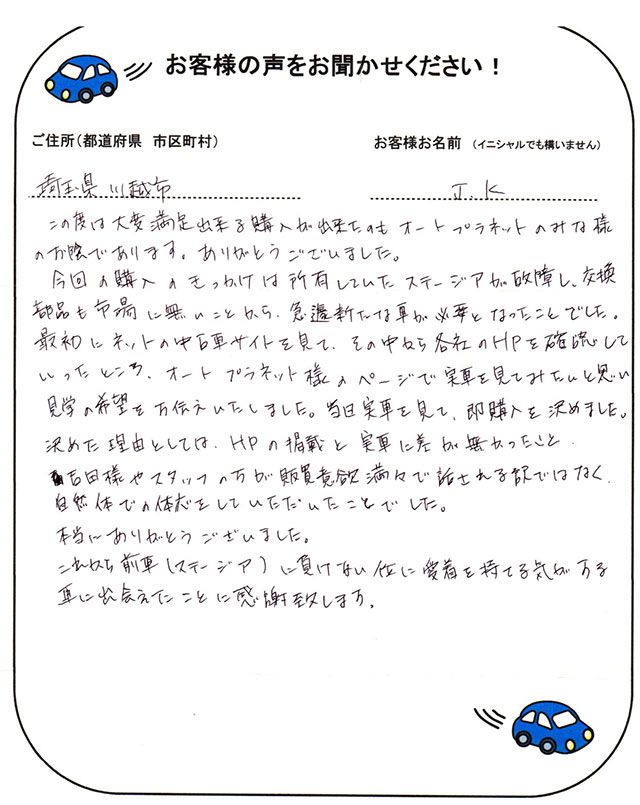 お客様の声をお聞かせください！
ご住所（都道府県　市区町村）
お客様お名前　（イニシャルでも構いません）
埼玉県 川越市
J.K
この度は大変満足出来る購入が出来たのもオートプラネットのみな様
のお陰であります。ありがとうございました。
今回の購入のきっかけは所有していたステージアが故障し、交換
部品も市場に無いことから、急遽新たな車が必要となったことでした。
最初にネットの中古車サイトを見て、その中から各社のHPを確認して
いったところ、オートプラネット様のページで実車を見てみたいと思い
見学の希望をお伝えいたしました。当日実車を見て、即購入を決めました。
決めた理由としては、HPの掲載と実車に差が無かったこと、
吉田様やスタッフの方が販買意欲満々で話される訳ではなく、
自然体での体応をしていただいたことでした。
本当にありがとうございました。
これから前車（ステージア）に負けない位に愛着を持てる気がする
車に出会えたことに感謝致します。